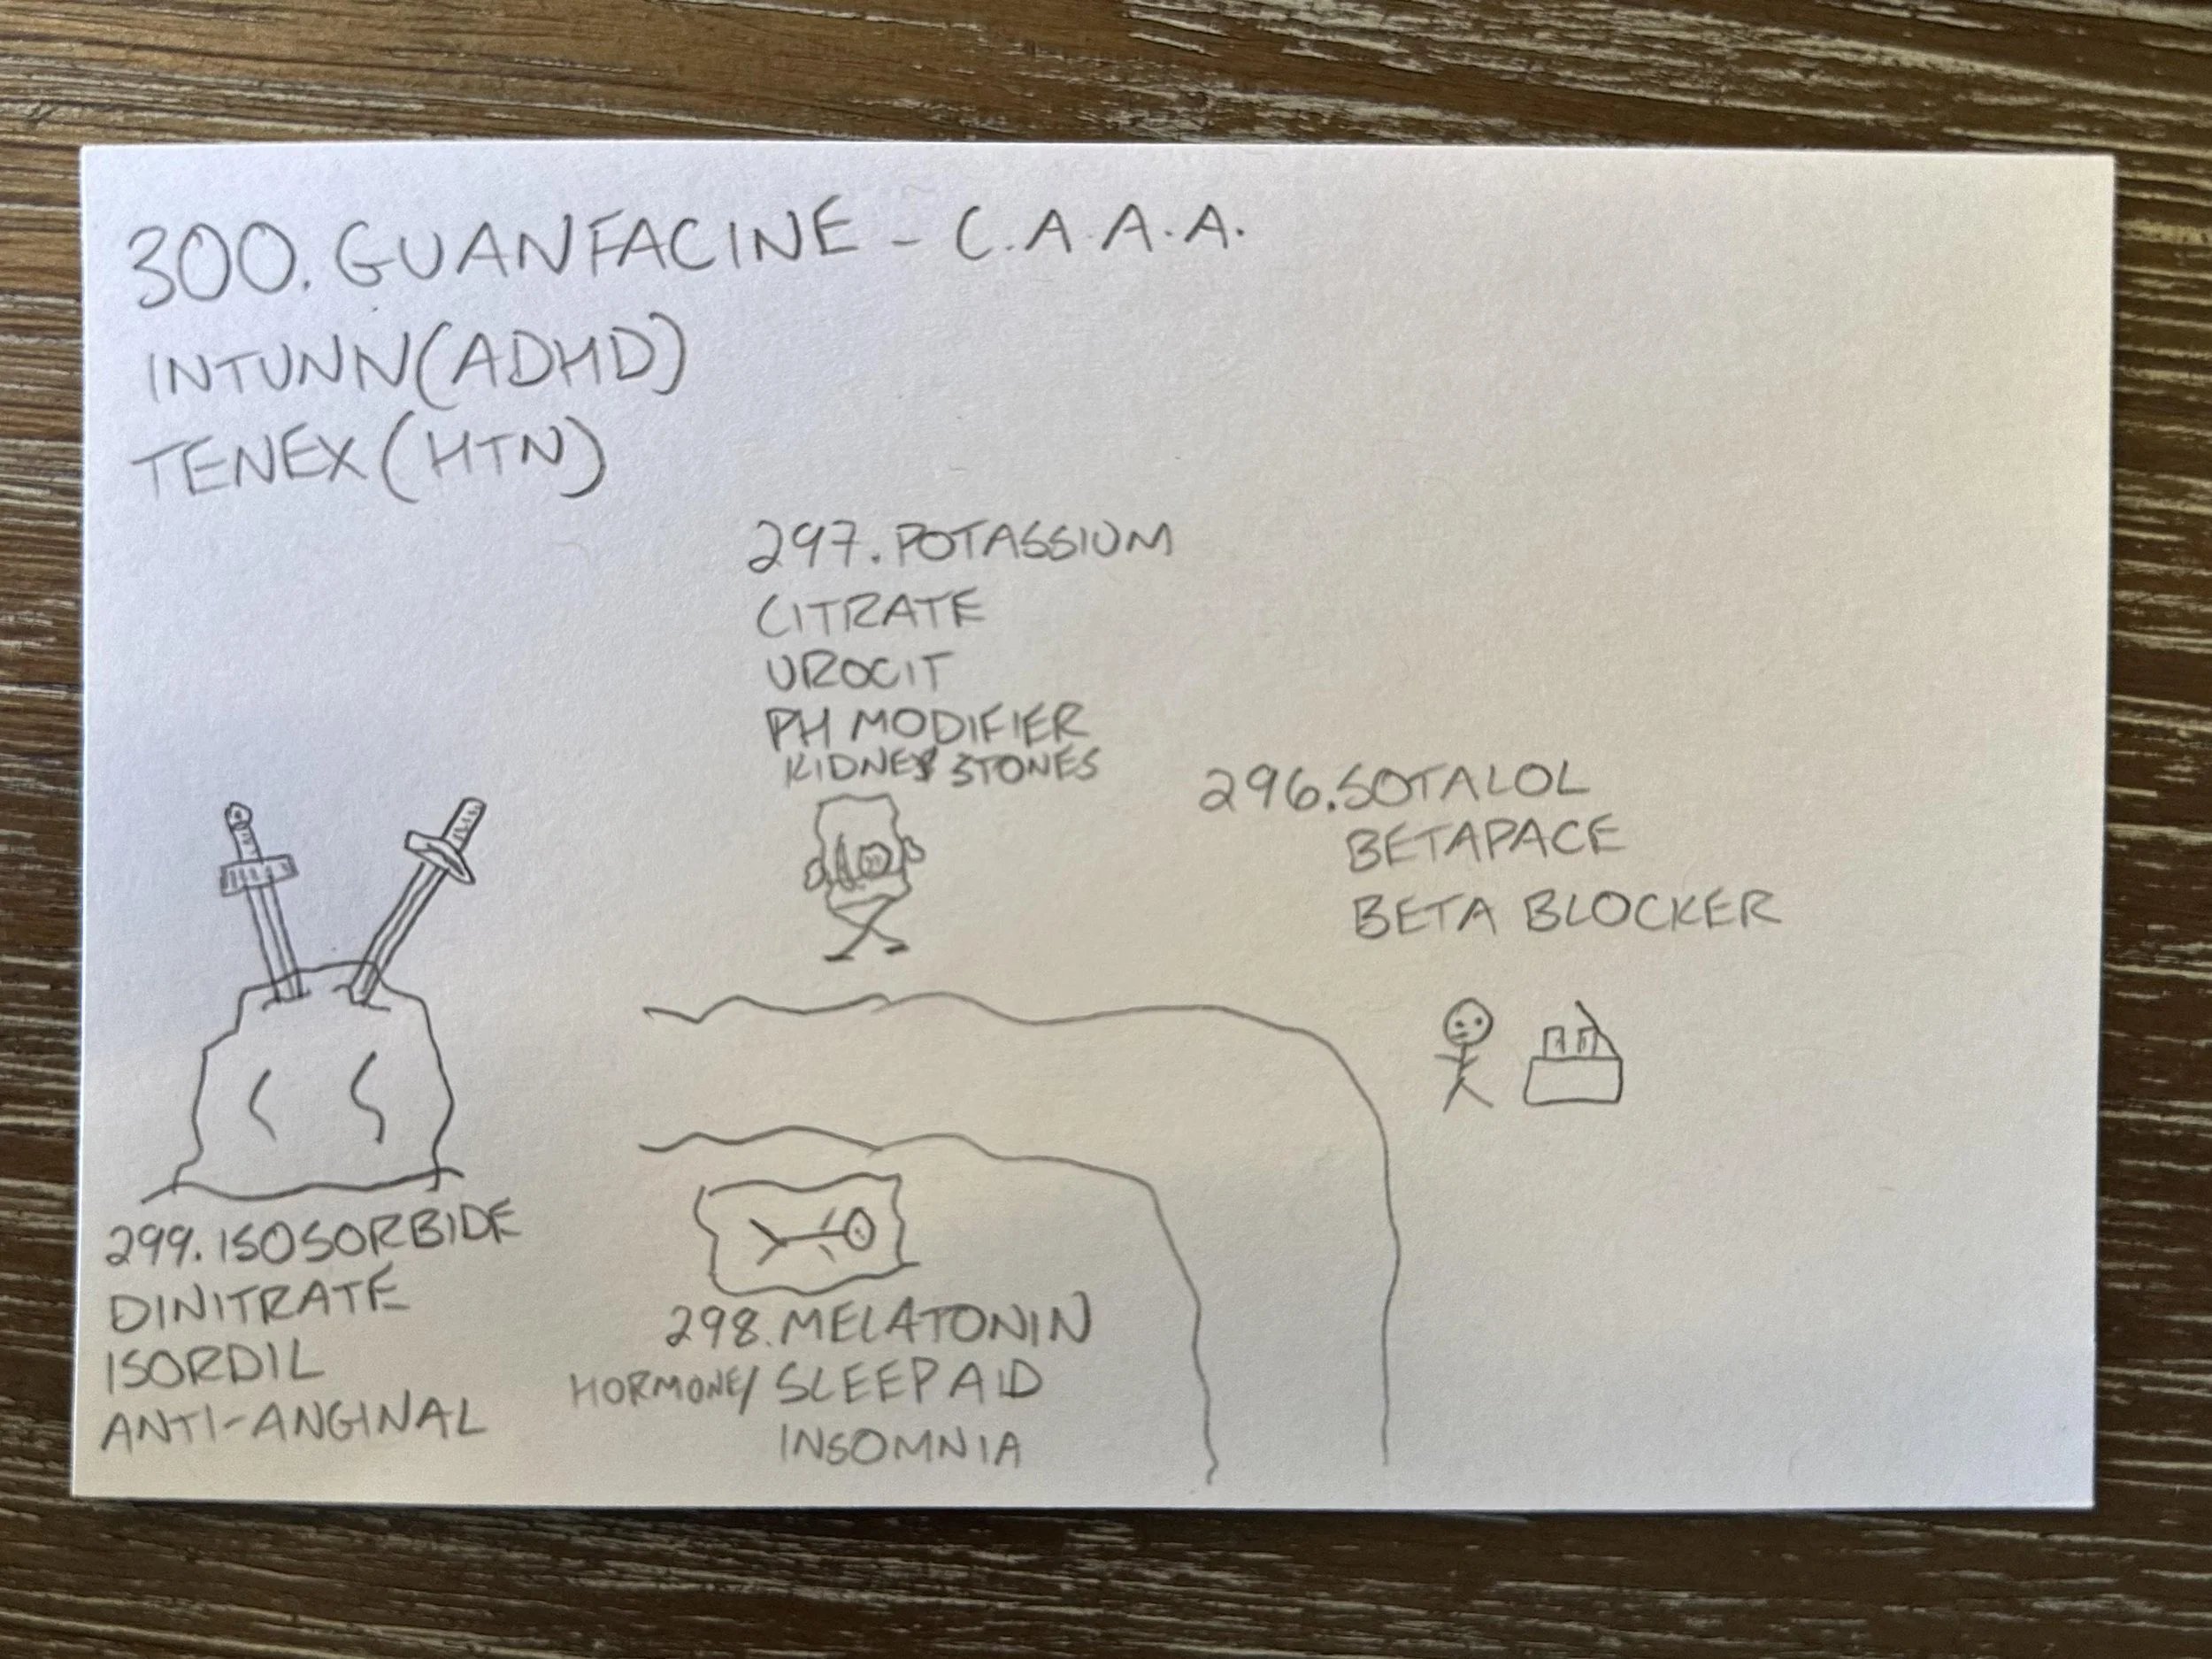 300. GUANFACINE - C.A.A.A.
INTUNN (ADHD)
TENEX (HTN)
297. POTASSIUM
CITRATE
UROCIT
PH MODIFIER
KIDNEY STONES
296. SOTALOL
BETAPACE
BETA BLOCKER
299. ISOSORBIDE
DINITRATE
ISORDIL
ANTI-ANGINAL
298. MELATONIN
HORMONE/ SLEEP AID
INSOMNIA